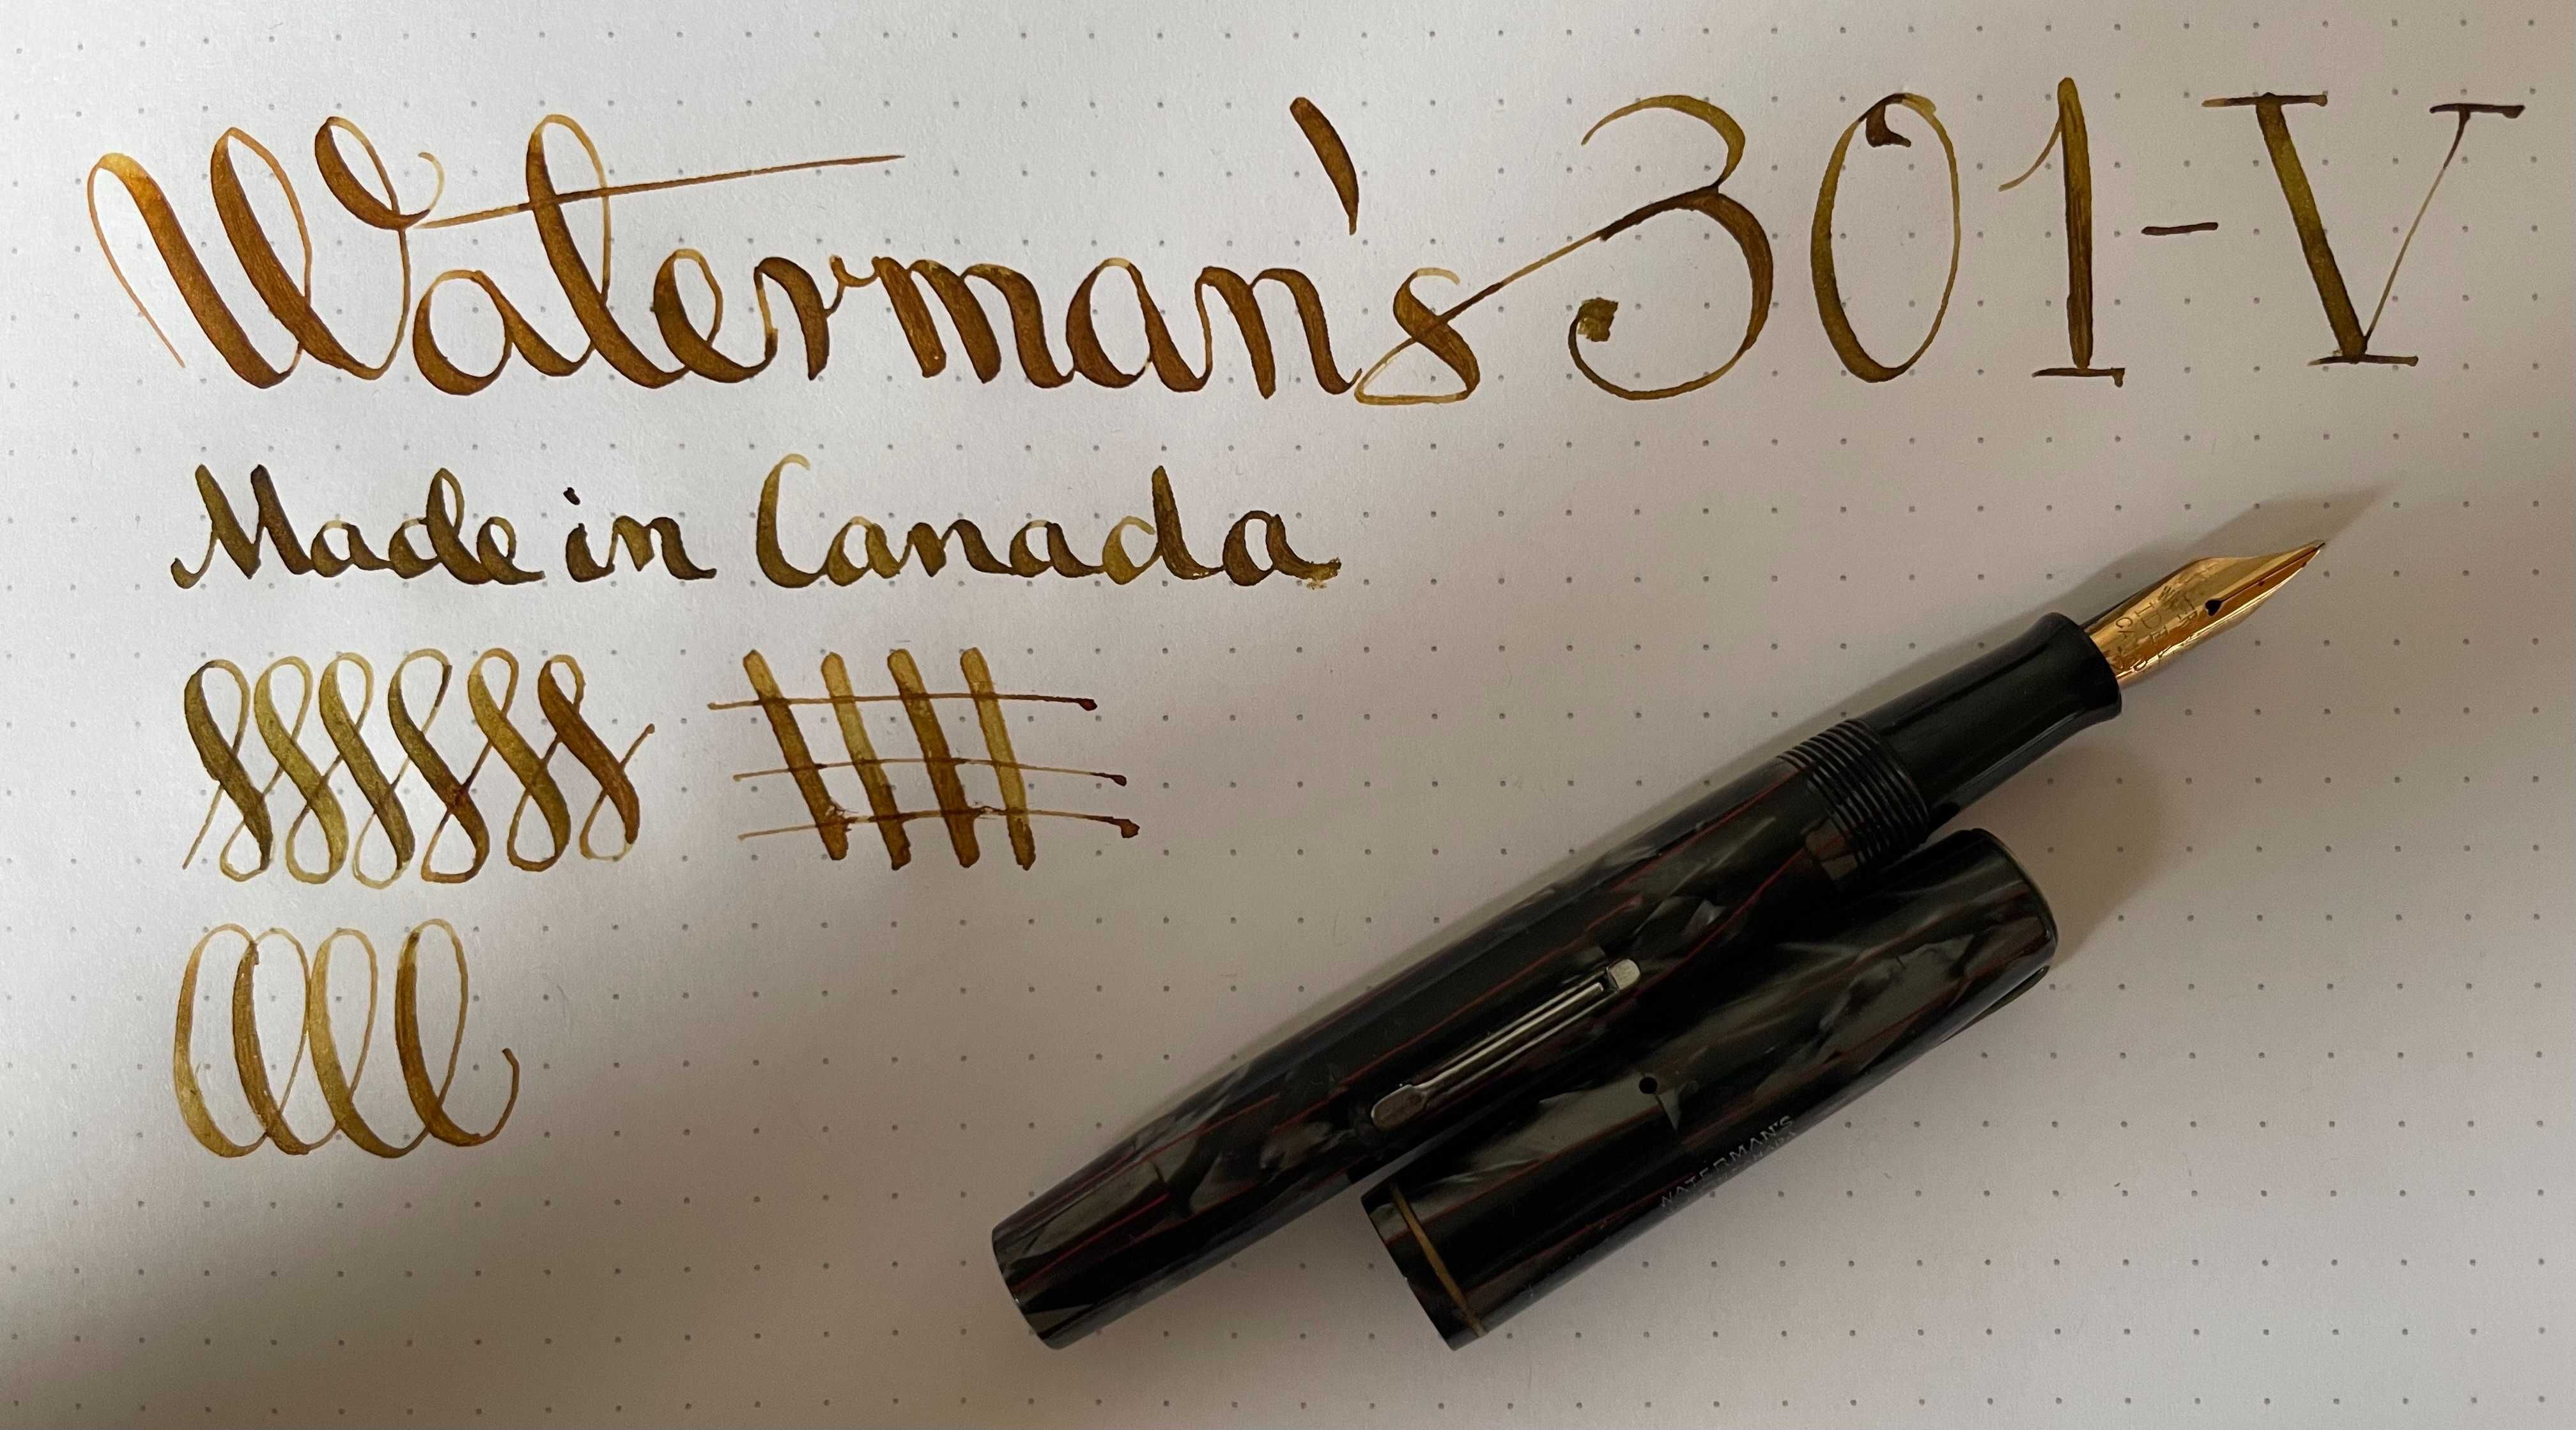 Waterman's 301-V
Made in Canada
WATERMAN'S